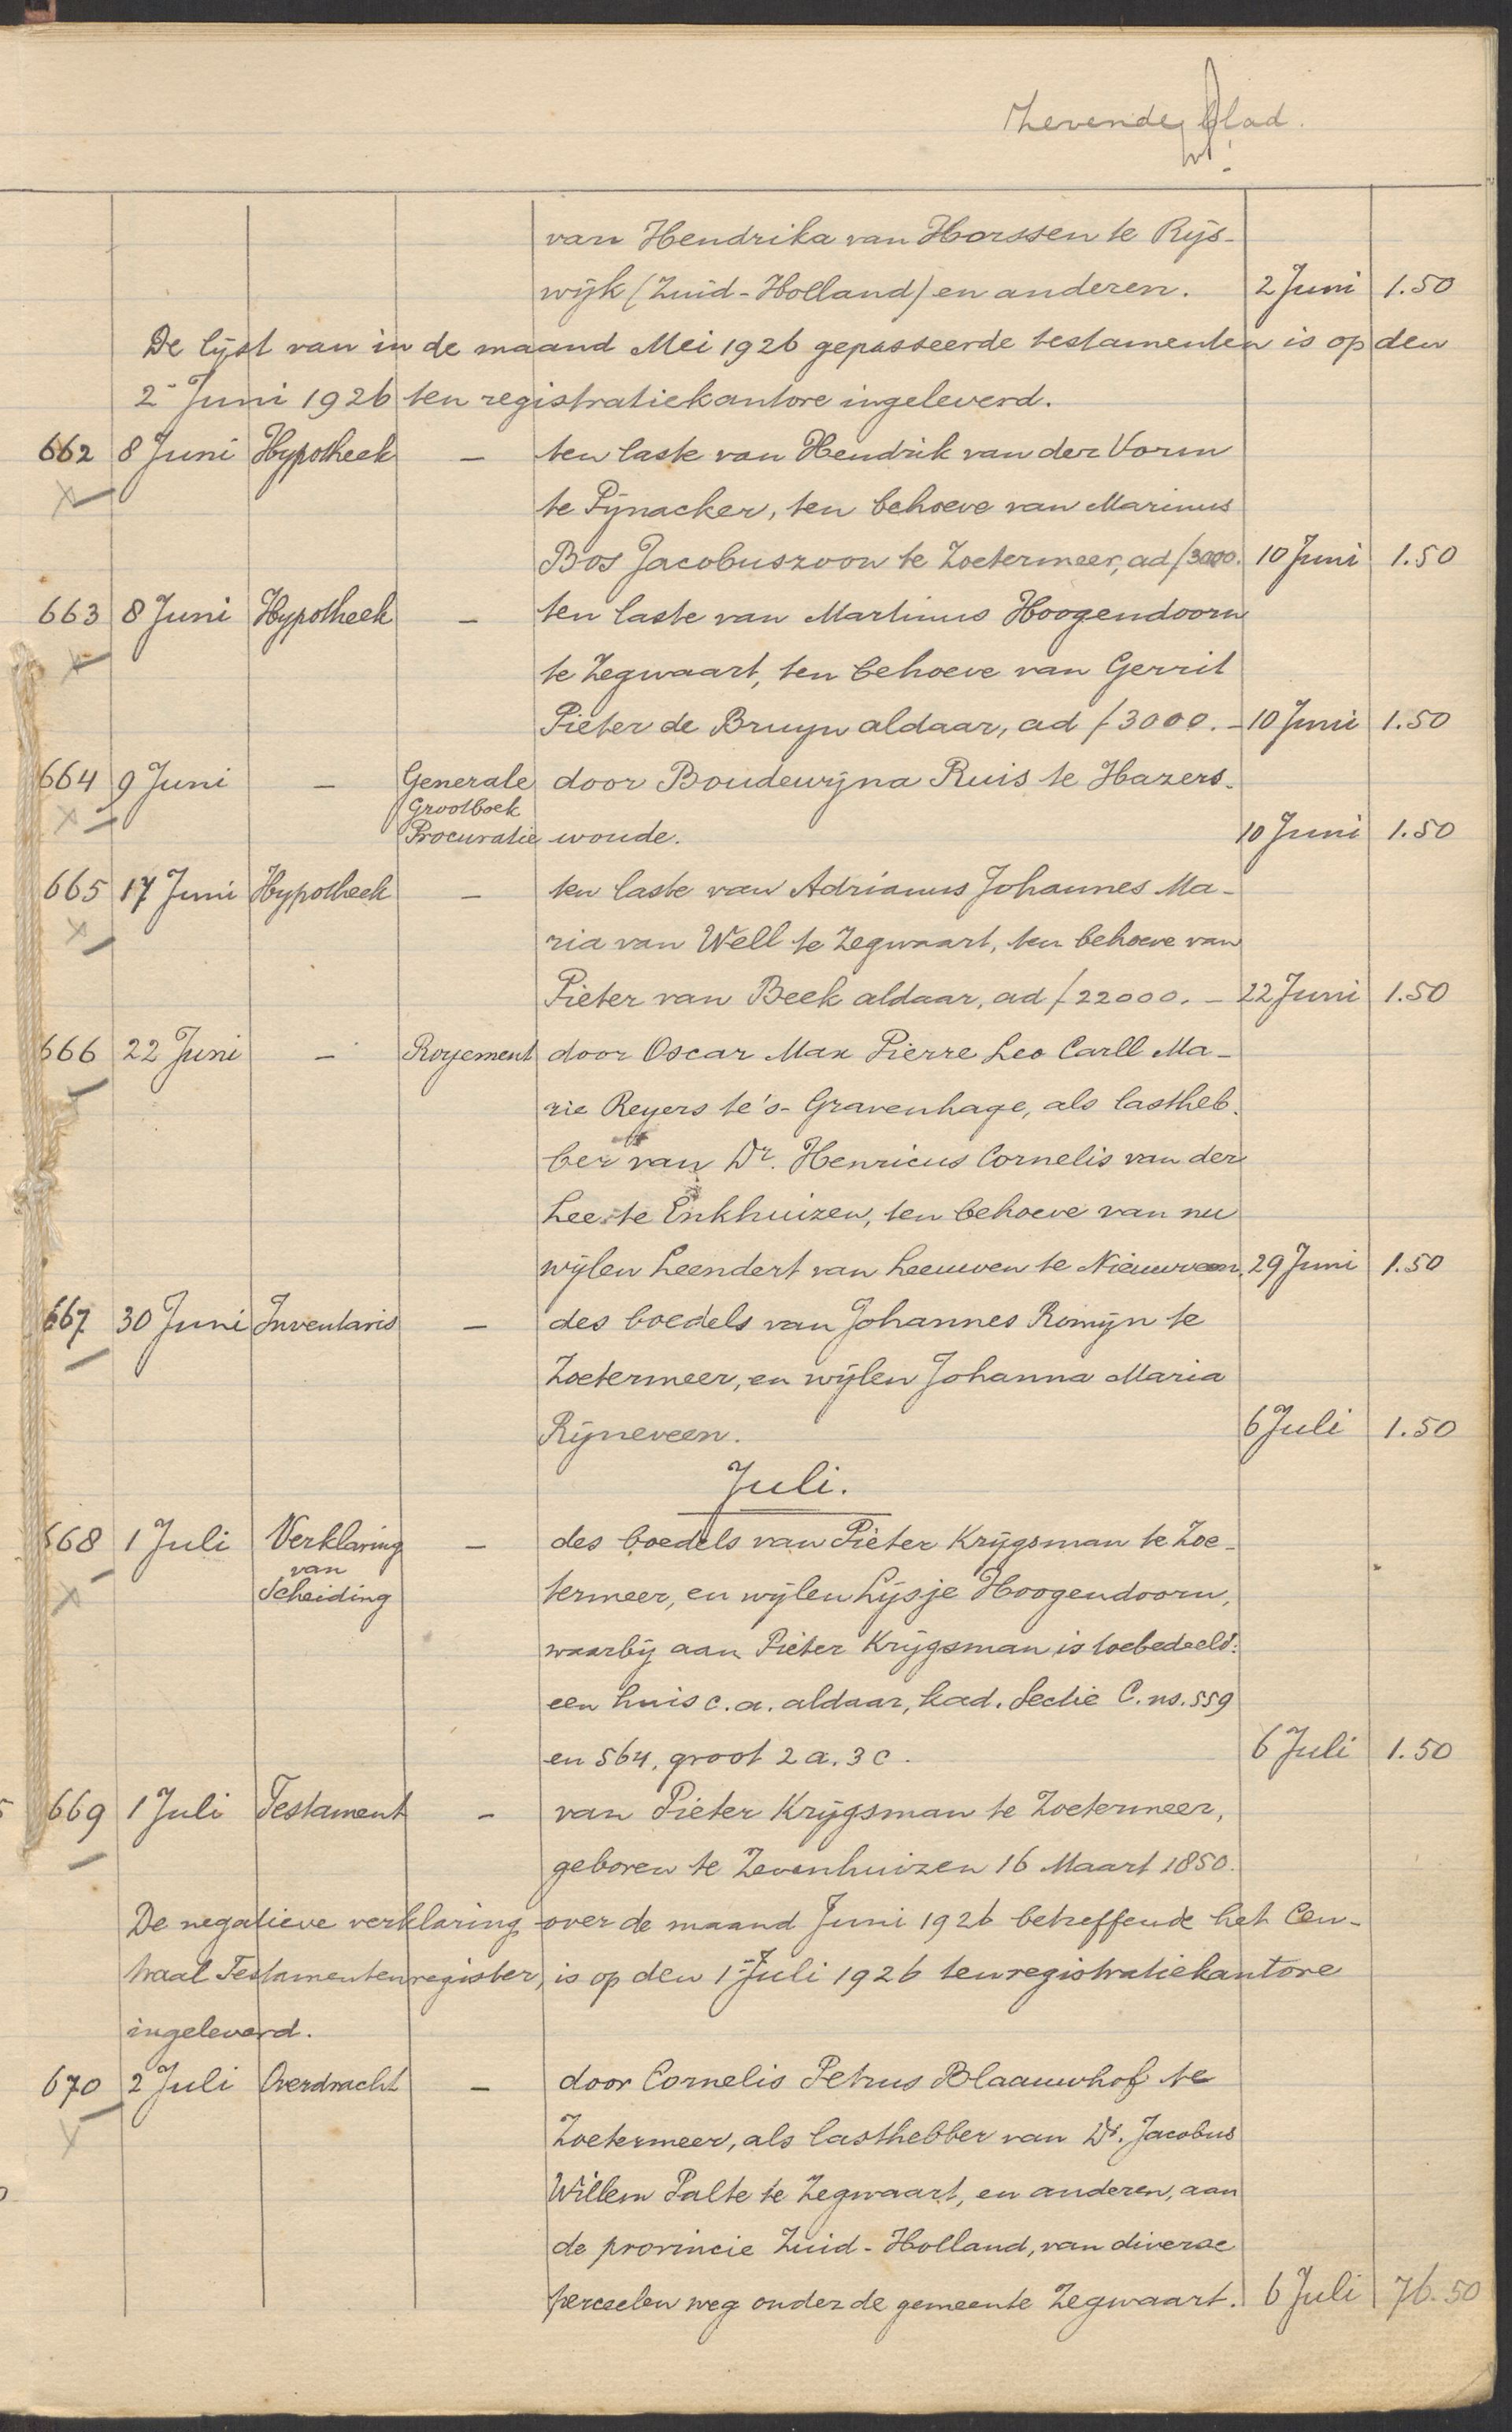 Zevende blad.
van Hendrika van Horssen te Rijs-
wijk (Zuid-Holland) en anderen. 2 Juni 1.50
De lijst van in de maand Mei 1926 gepasseerde testamenten is op den
2 Juni 1926 ten registratiekantore ingeleverd.
662 8 Juni Hypotheek — ten laste van Hendrik van der Vorm
te Pijnacker, ten behoeve van Marinus
Bos Jacobuszoon te Zoetermeer, ad ƒ3000. 10 Juni 1.50
663 8 Juni Hypotheek — ten laste van Martinus Hoogendoorn
te Zegwaart, ten behoeve van Gerrit
Pieter de Bruyn aldaar, ad ƒ3000.- 10 Juni 1.50
664 9 Juni — Generale door Boudewijna Ruis te Hazers-
Grootboek
Procuratie woude. 10 Juni 1.50
665 17 Juni Hypotheek — ten laste van Adrianus Johannes Ma-
ria van Well te Zegwaart, ten behoeve van
Pieter van Beek aldaar, ad ƒ22000.- 22 Juni 1.50
666 22 Juni — Royement door Oscar Max Pierre Leo Carll Ma-
rie Reyers te 's-Gravenhage, als lastheb-
ber van Dr. Henricus Cornelis van der
Lee te Enkhuizen, ten behoeve van nu
wijlen Leendert van Leeuwen te Nieuwveen. 29 Juni 1.50
667 30 Juni Inventaris — des boedels van Johannes Romijn te
Zoetermeer, en wijlen Johanna Maria
Rijneveen. 6 Juli 1.50
Juli.
668 1 Juli Verklaring — des boedels van Pieter Krijgsman te Zoe-
van
Scheiding termeer, en wijlen Lijsje Hoogendoorn,
waarbij aan Pieter Krijgsman is toebedeeld:
een huis c.a. aldaar, kad. Sectie C. ns. 559
en 564, groot 2 a. 3 c. 6 Juli 1.50
669 1 Juli Testament — van Pieter Krijgsman te Zoetermeer,
geboren te Zevenhuizen 16 Maart 1850.
De negatieve verklaring over de maand Juni 1926 betreffende het Cen-
traal Testamentenregister, is op den 1 Juli 1926 ten registratiekantore
ingeleverd.
670 2 Juli Overdracht — door Cornelis Petrus Blaauwhof te
Zoetermeer, als lasthebber van Ds. Jacobus
Willem Palte te Zegwaart, en anderen, aan
de provincie Zuid-Holland, van diverse
perceelen weg onder de gemeente Zegwaart. 6 Juli 76.50